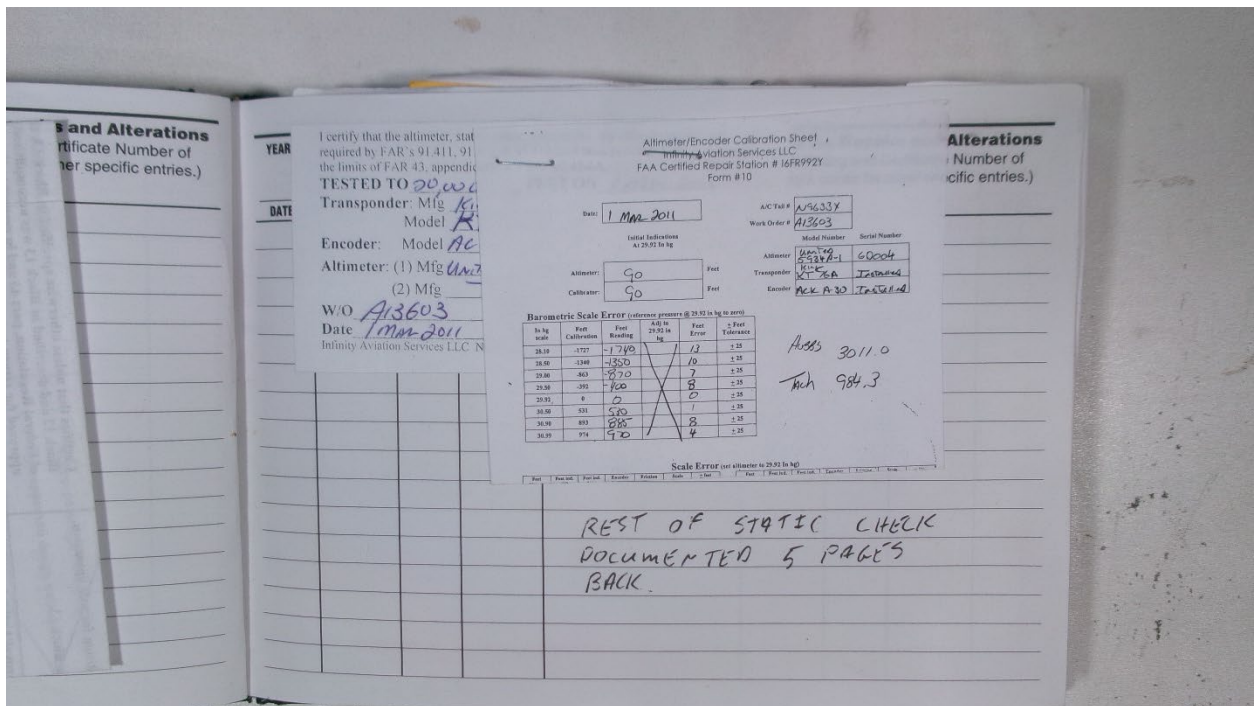 s and Alterations
rtificate Number of
her specific entries.)
YEAR
DATE
I certify that the altimeter, stat
required by FAR's 91.411, 91
the limits of FAR 43, appendic
TESTED TO 20,000
Transponder: Mfg Ki
Model K
Encoder: Model AC
Altimeter: (1) Mfg UNIT
(2) Mfg
W/O A13603
Date 1 MAR 2011
Infinity Aviation Services LLC N
Altimeter/Encoder Calibration Sheet
Infinity Aviation Services LLC
FAA Certified Repair Station # I6FR992Y
Form #10
Date: 1 MAR 2011
A/C Tail # N9633X
Work Order # A13603
Initial Indications
At 29.92 In hg
Model Number Serial Number
Altimeter UNITED 5934A-1 60004
Altimeter: 90 Feet
Transponder KT 76A INSTALLED
Calibrator: 90 Feet
Encoder ACK A-30 INSTALLED
Barometric Scale Error (reference pressure @ 29.92 in hg to zero)
In hg scale Feet Calibration Feet Reading Adj to 29.92 in hg Feet Error ± Feet Tolerance
28.10 -1727 -1740 13 ± 25
28.50 -1340 -1350 10 ± 25
29.00 -863 -870 7 ± 25
29.50 -392 -400 8 ± 25
29.92 0 0 0 ± 25
30.50 531 530 1 ± 25
30.90 893 885 8 ± 25
30.99 974 970 4 ± 25
3011.0
Tach 984.3
Scale Error (set altimeter to 29.92 In hg)
Alterations
Number of
cific entries.)
REST OF STATIC CHECK
DOCUMENTED 5 PAGES
BACK.